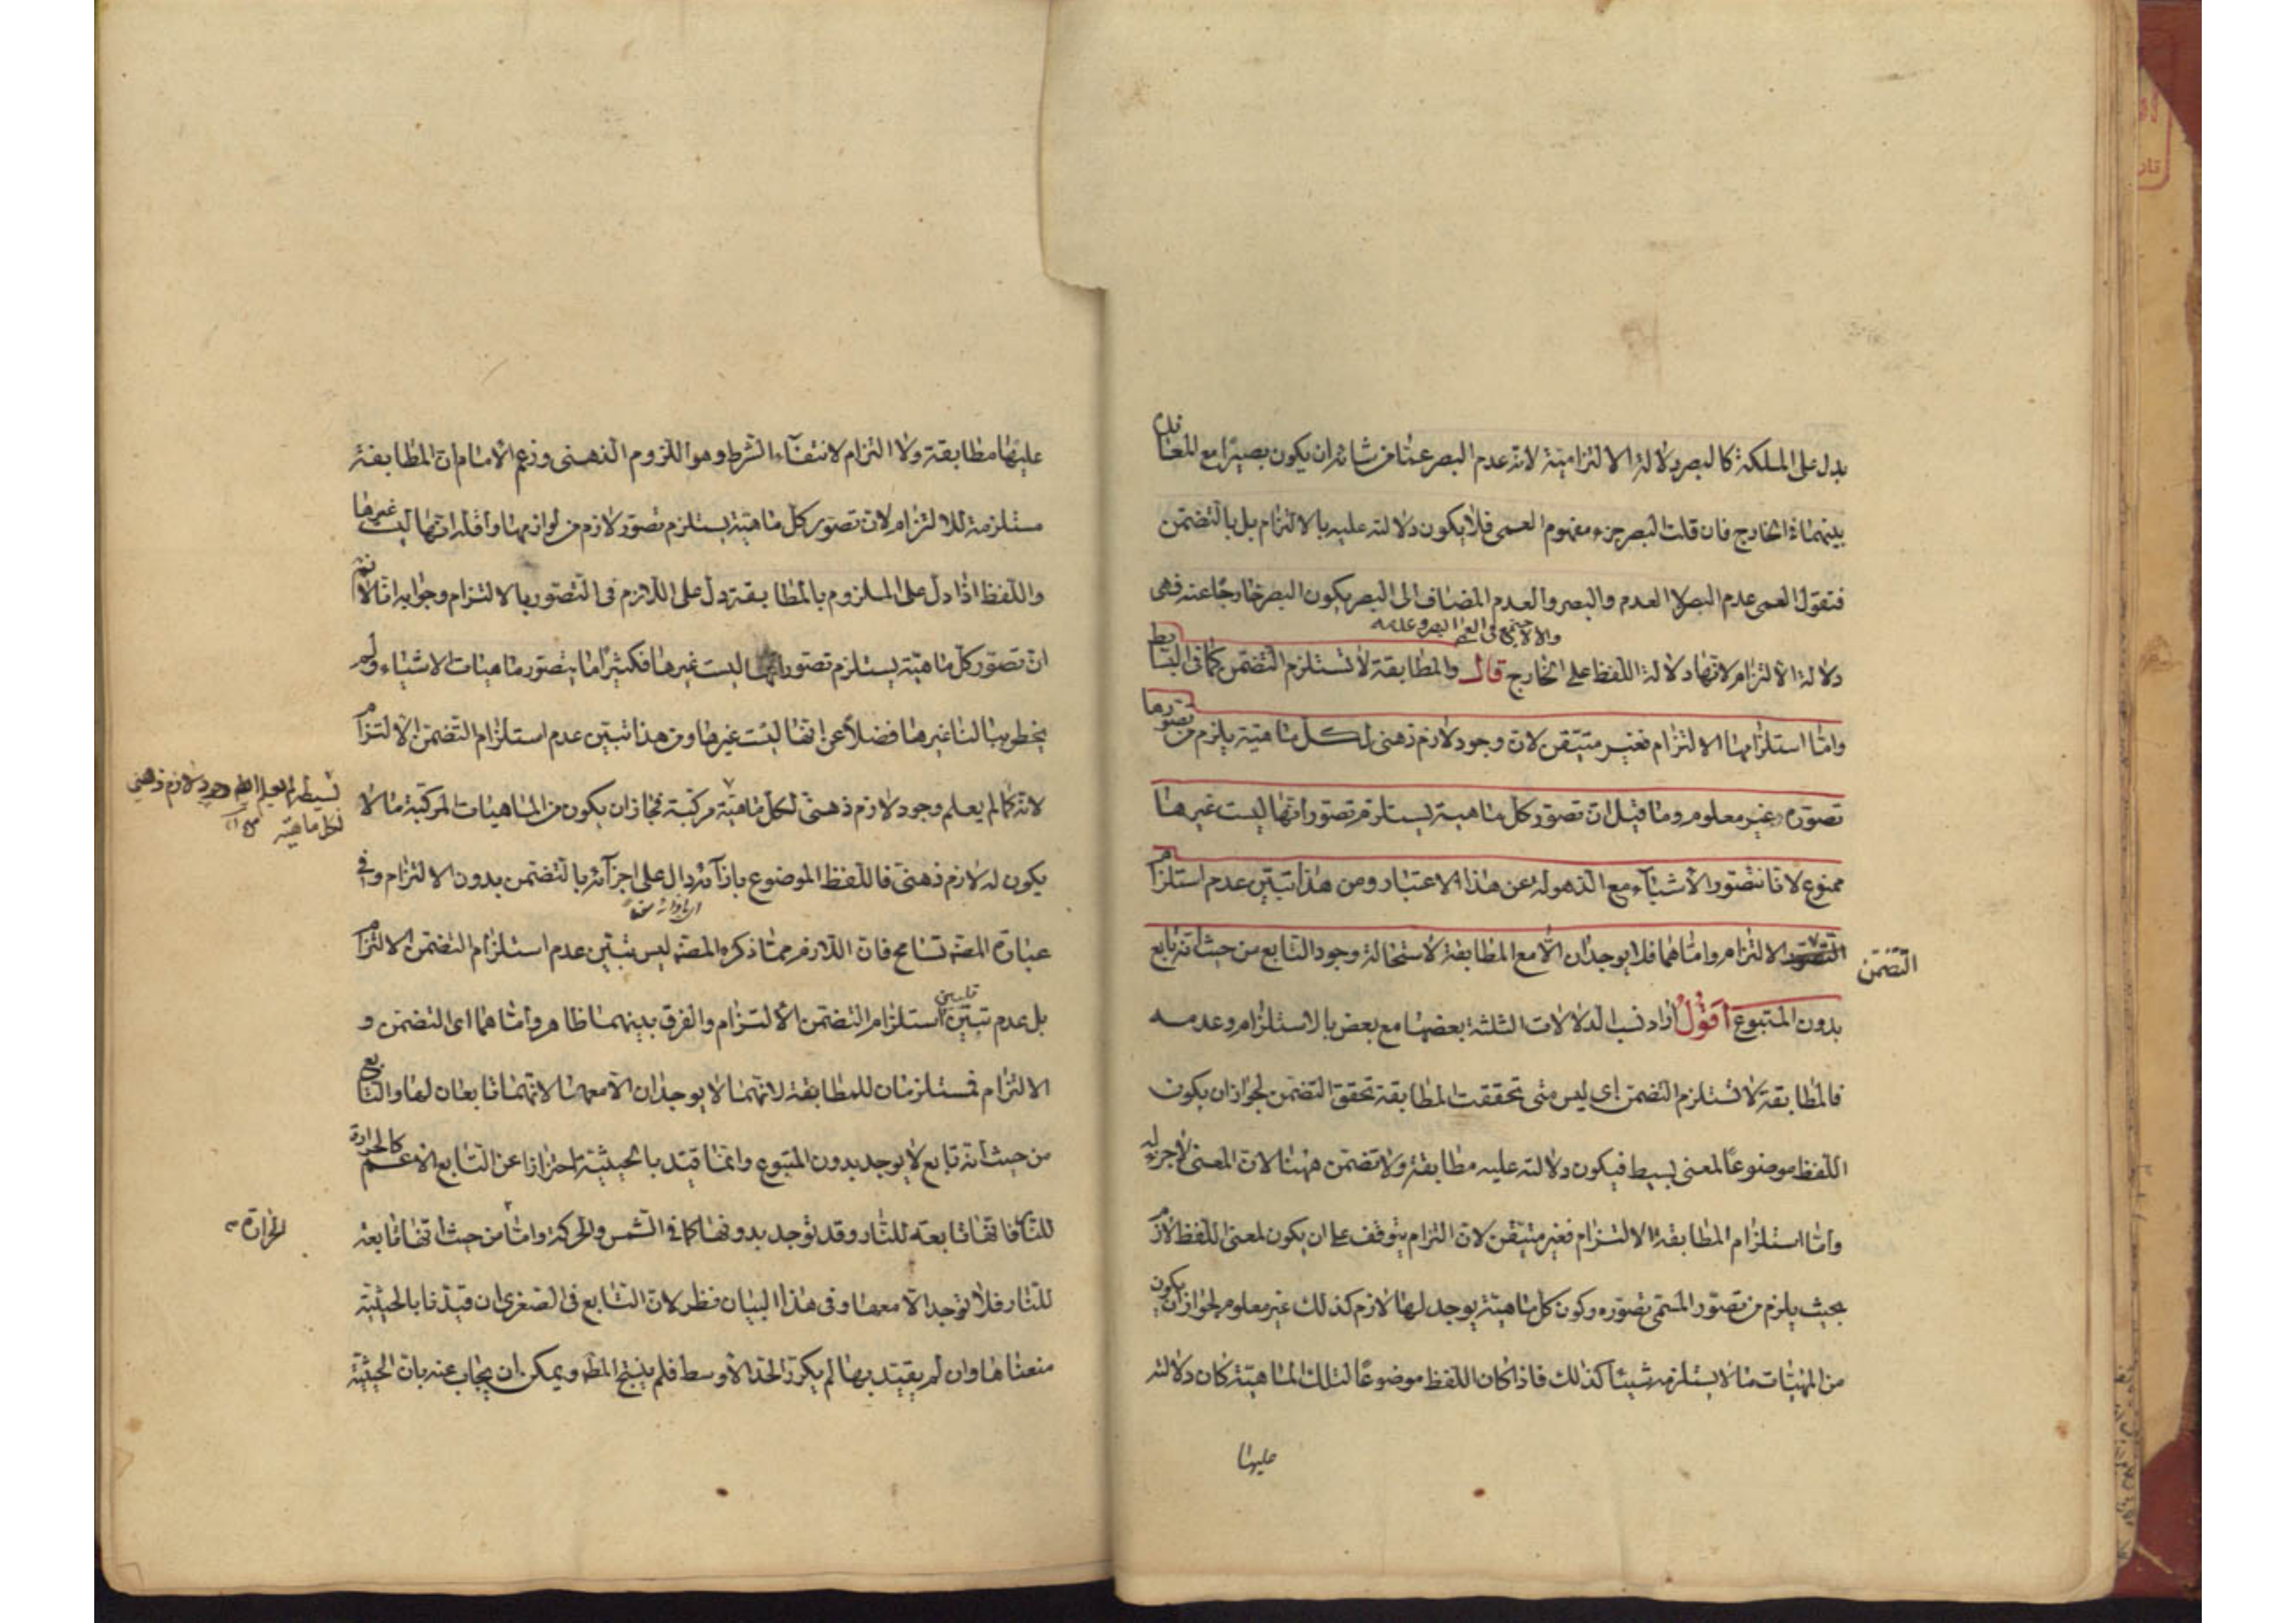 يدل على الملكة كالبصر دلالة الالتزامية لانه عدم البصر عما من شانه ان يكون بصيرا مع المعاندة
بينهما فى الخارج فان قلت البصر جزء مفهوم العمى فلا يكون دلالته عليه بالالتزام بل بالتضمن
فنقول العمى عدم البصر لا العدم والبصر والعدم المضاف الى البصر يكون البصر خارجا عنه فهى
والا لاجتمع فى العمى البصر وعدمه
دلالة الالتزام لانها دلالة اللفظ على الخارج قال والمطابقة لا تستلزم التضمن كما فى البسايط
واما استلزامها الالتزام فغير متيقن لان وجود لازم ذهنى لكل ماهية يلزم من تصورها
تصوره غير معلوم وما قيل ان تصور كل ماهية يستلزم تصور انها ليست غيرها
ممنوع لانا نتصور الاشياء مع الذهول عن هذا الاعتبار ومن هذا تبين عدم استلزام
التضمن
الالتزام واما هما فلا يوجدان الا مع المطابقة لاستحالة وجود التابع من حيث انه تابع
بدون المتبوع اقول اراد نسب الدلالات الثلثة بعضها مع بعض بالاستلزام وعدمه
فالمطابقة لا تستلزم التضمن اى ليس متى تحققت المطابقة تحقق التضمن لجواز ان يكون
اللفظ موضوعا لمعنى بسيط فيكون دلالته عليه مطابقة ولا تضمن ههنا لان المعنى لا جزء له
واما استلزام المطابقة الالتزام فغير متيقن لان التزام يتوقف على ان يكون لمعنى اللفظ لازم
بحيث يلزم من تصور المسمى تصوره وكون كل ماهية يوجد لها لازم كذلك غير معلوم لجواز ان يكون
من المهيات ما لا يستلزمه شيئا كذلك فاذا كان اللفظ موضوعا لتلك الماهية كان دلالته
عليها
عليها مطابقة ولا التزام لانتفاء الشرط وهو اللزوم الذهنى وزعم الامام ان المطابقة
مستلزمة للالتزام لان تصور كل ماهية يستلزم تصور لازم من لوازمها واقله انها ليست غيرها
واللفظ اذا دل على الملزوم بالمطابقة دل على اللازم فى التصور بالالتزام وجوابه انا لا نم
ان تصور كل ماهية يستلزم تصور انها ليست غيرها فكثيرا ما يتصور ماهيات الاشياء ولم
يخطر ببالنا غيرها فضلا عن انها ليست غيرها ومن هذا تبين عدم استلزام التضمن الالتزام
لانه كما لم يعلم وجود لازم ذهنى لكل ماهية مركبة فجاز ان يكون من الماهيات المركبة ما لا
بسيطة لم يعلم ايضا وجود لازم ذهنى
لكل ماهية
يكون له لازم ذهنى فاللفظ الموضوع بازائه دال على اجزائه بالتضمن بدون الالتزام وفى
عبارة المصنه تسامح فان اللازم مما ذكره المصنه ليس تبين عدم استلزام التضمن الالتزام
بل عدم تبين استلزام التضمن الالتزام والفرق بينهما ظاهر واما هما اى التضمن و
الالتزام فمستلزمان للمطابقة لانهما لا يوجدان الا معها لانهما تابعان لها والتابع
من حيث انه تابع لا يوجد بدون المتبوع وانما قيد بالحيثية احترازا عن التابع الاعم كالحرارة
للنار فانها تابعة للنار وقد توجد بدونها كما فى الشمس والحركة واما من حيث انها تابعة
الحرارة
للنار فلا توجد الا معها وفى هذا البيان نظر لان التابع فى الصغرى ان قيدنا بالحيثية
منعناها وان لم يقيد بها لم يكرر الحد الاوسط فلم ينتج المط ويمكن ان يجاب عنه بان الحيثية